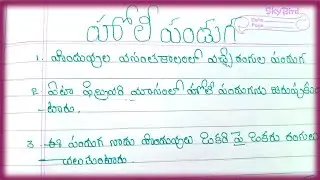 SkyBird
Date
Page
హోలీ పండుగ
1. హిందువుల వసంతకాలంలో వచ్చే రంగుల పండుగ
2. ఏటా ఫిబ్రవరి మాసంలో హోలీ పండుగను జరుపుకుం
టారు.
3. ఈ పండుగ నాడు హిందువులు ఒకరి పై ఒకరు రంగులు
చల్లుకుంటారు.